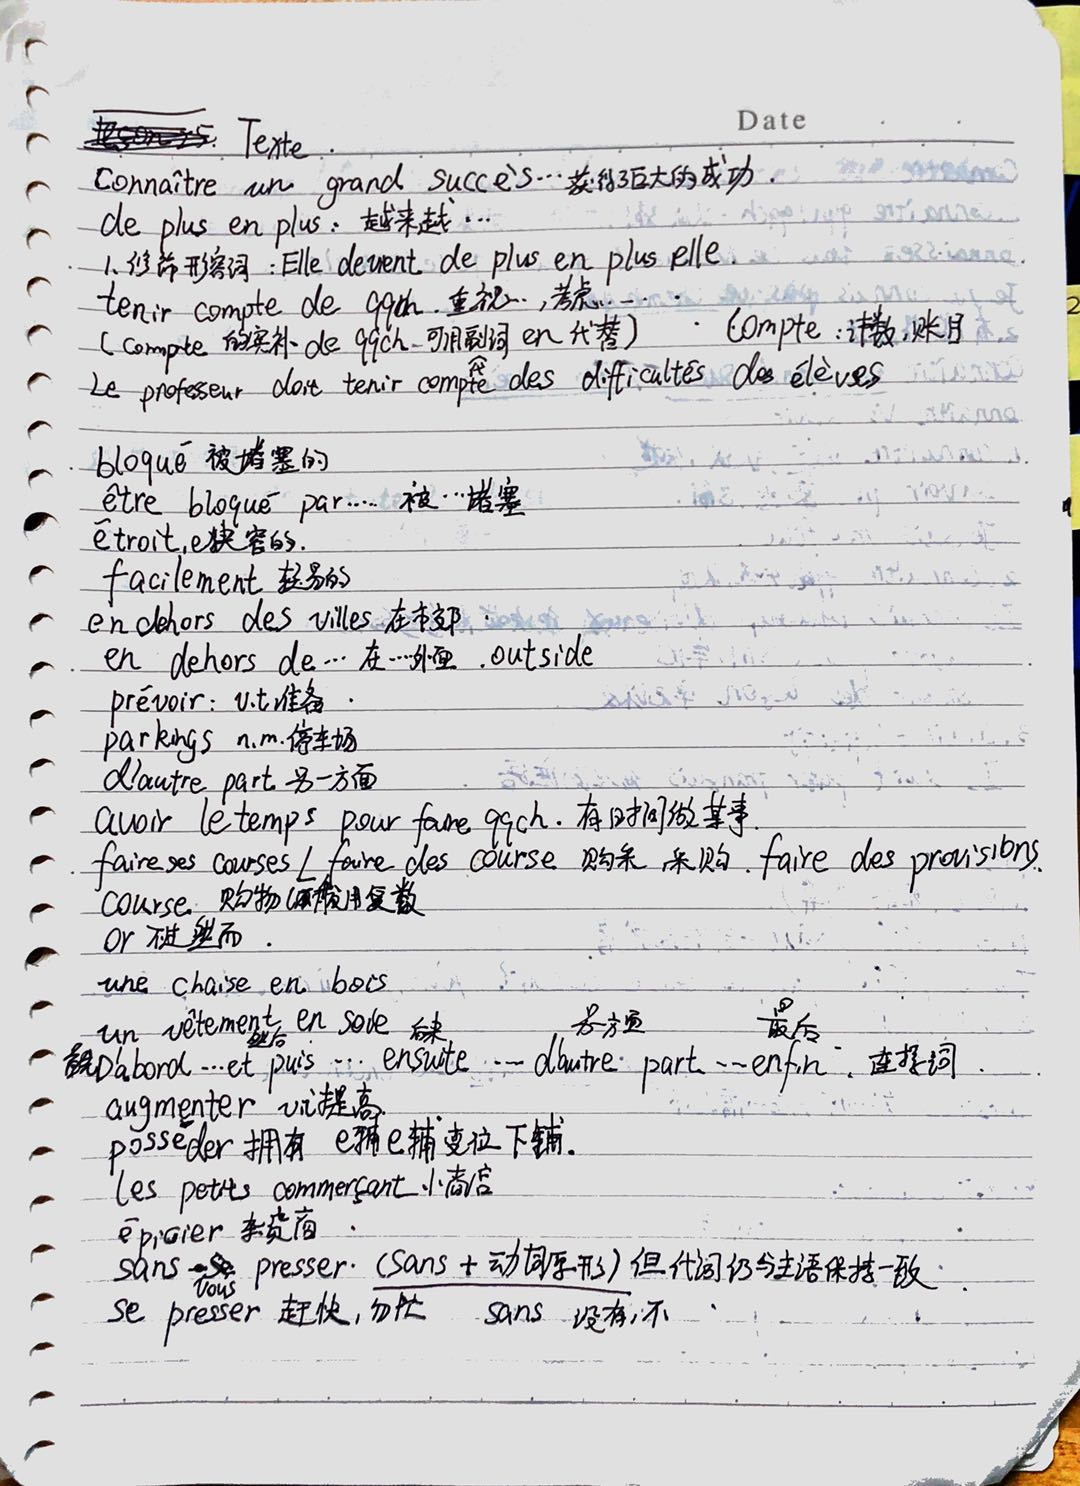 Date
Texte.
Connaître un grand succès… 获得了巨大的成功.
de plus en plus: 越来越…
1. 修饰形容词: Elle devent de plus en plus elle.
tenir compte de qqch. 重视…, 考虑……
(compte 的宾补 de qqch 可用副词 en 代替) Compte: 计数, 账目
Le professeur doit tenir compte des difficultés des élèves
bloqué 被堵塞的
être bloqué par…… 被…堵塞
étroit, e 狭窄的.
facilement 轻易的
en dehors des villes 在市郊.
en dehors de… 在…外面. outside
prévoir: v.t. 准备.
parkings n.m. 停车场
d'autre part 另一方面
avoir le temps pour faire qqch. 有时间做某事.
faire ses courses / faire des course 购采 采购. faire des provisions.
course. 购物 常用复数
or 不过 然而.
une chaise en bois
un vêtement en soie
然后 后来 另方面 最后
首先 D'abord …et puis … ensuite … d'autre part …enfin. 连接词.
augmenter v.i. 提高
posséder 拥有
les petits commerçant 小商店
épicier 杂货商.
sans se presser. (sans + 动词原形) 但代词仍与主语保持一致.
vous
se presser 赶快, 匆忙 sans 没有, 不.